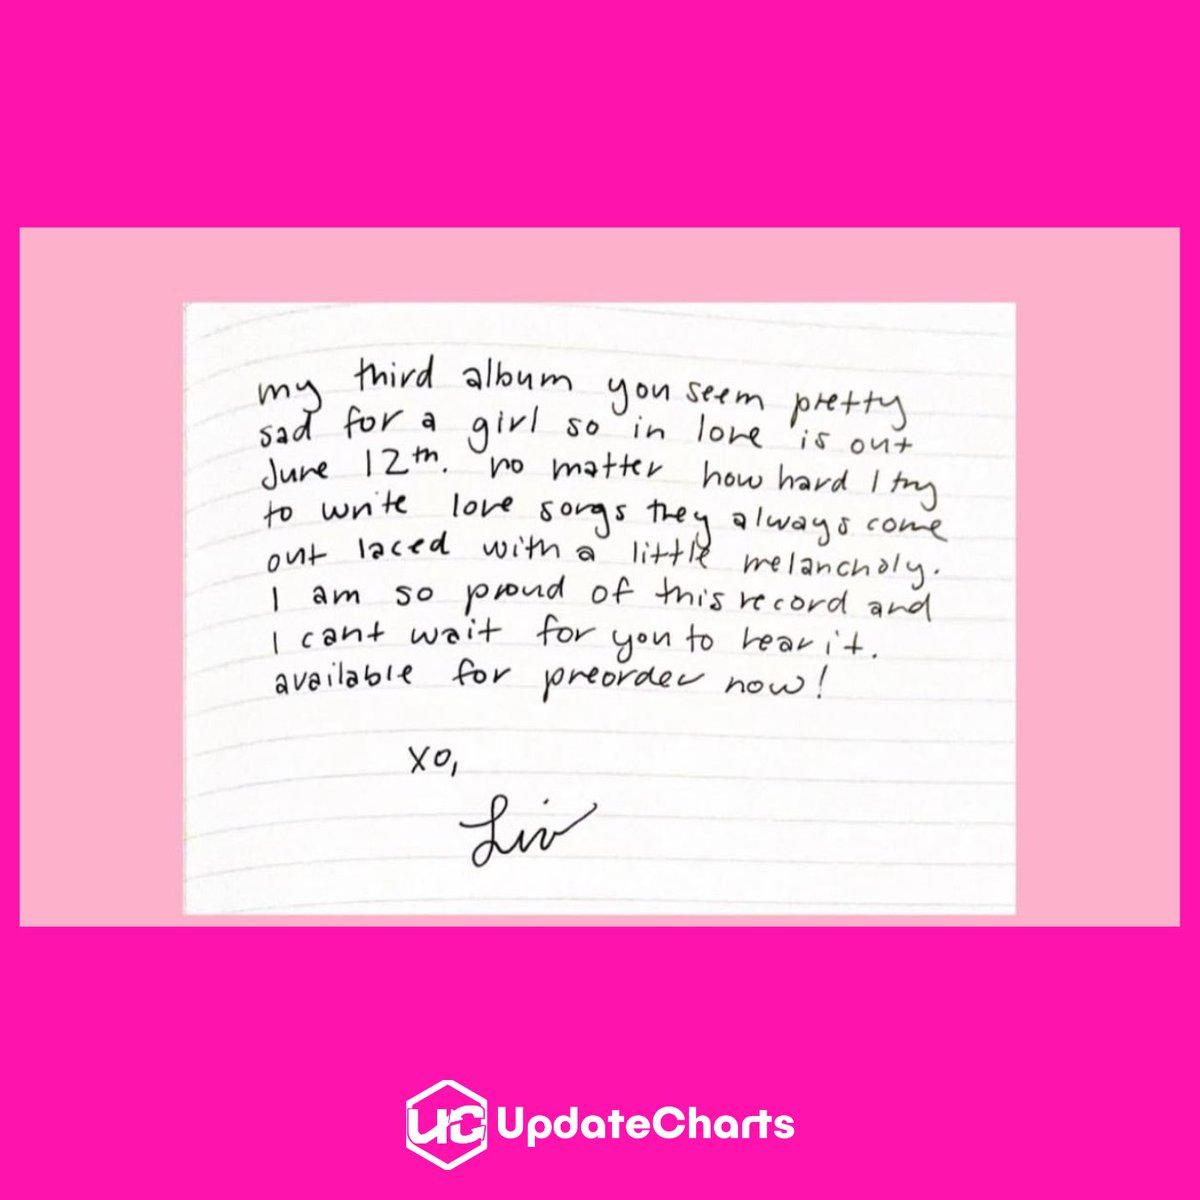 my third album you seem pretty
sad for a girl so in love is out
June 12th. no matter how hard I try
to write love songs they always come
out laced with a little melancholy.
I am so proud of this record and
I cant wait for you to hear it.
available for preorder now!
xo,
Liv
UC UpdateCharts